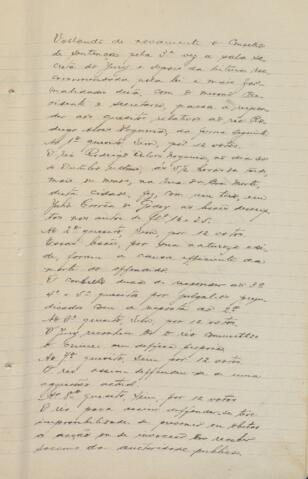 Voltando de novamente o Conselho
de Sentença pela 3ª vez a sala se-
creta do Jury e depois da leitura re-
commendada pela lei e mais for-
malidades desta, com o mesmo Pre-
sidente e secretario, passa a respon-
der aos quesitos relativos ao réo Ro-
drigo Alves Nogueira, da forma seguinte
Ao 1º quesito, Sim, por 12 votos.
O réo Rodrigo Alves Nogueira, no dia
de Outubro ultimo, as 5 1/2 horas da tarde,
mais ou menos, na rua da
desta cidade, fez com um tiro, em
João Corrêa de Godoy as lesões descri-
ptas nos autos de fls 16 e 25.
Ao 2º quesito, Sim, por 12 votos
Essas lesões, por sua natureza e sé-
de, foram a causa efficiente da
morte do offendido.
O conselho deixa de responder ao 3º
4º e 5º quesitos por julgal-os preju-
dicados com a resposta ao 2º
Ao 6º quesito, Sim, por 12 votos.
O Jury reconhece que o réo commetteu
o crime em defesa propria.
Ao 7º quesito, Sim por 12 votos.
O réo assim defendeu-se de uma
aggressão actual.
Ao 8º quesito, Sim, por 12 votos.
O réo para assim defender-se teve
impossibilidade de prevenir ou obstar
a acção ou de invocar e receber
soccorro da autoridade publica.